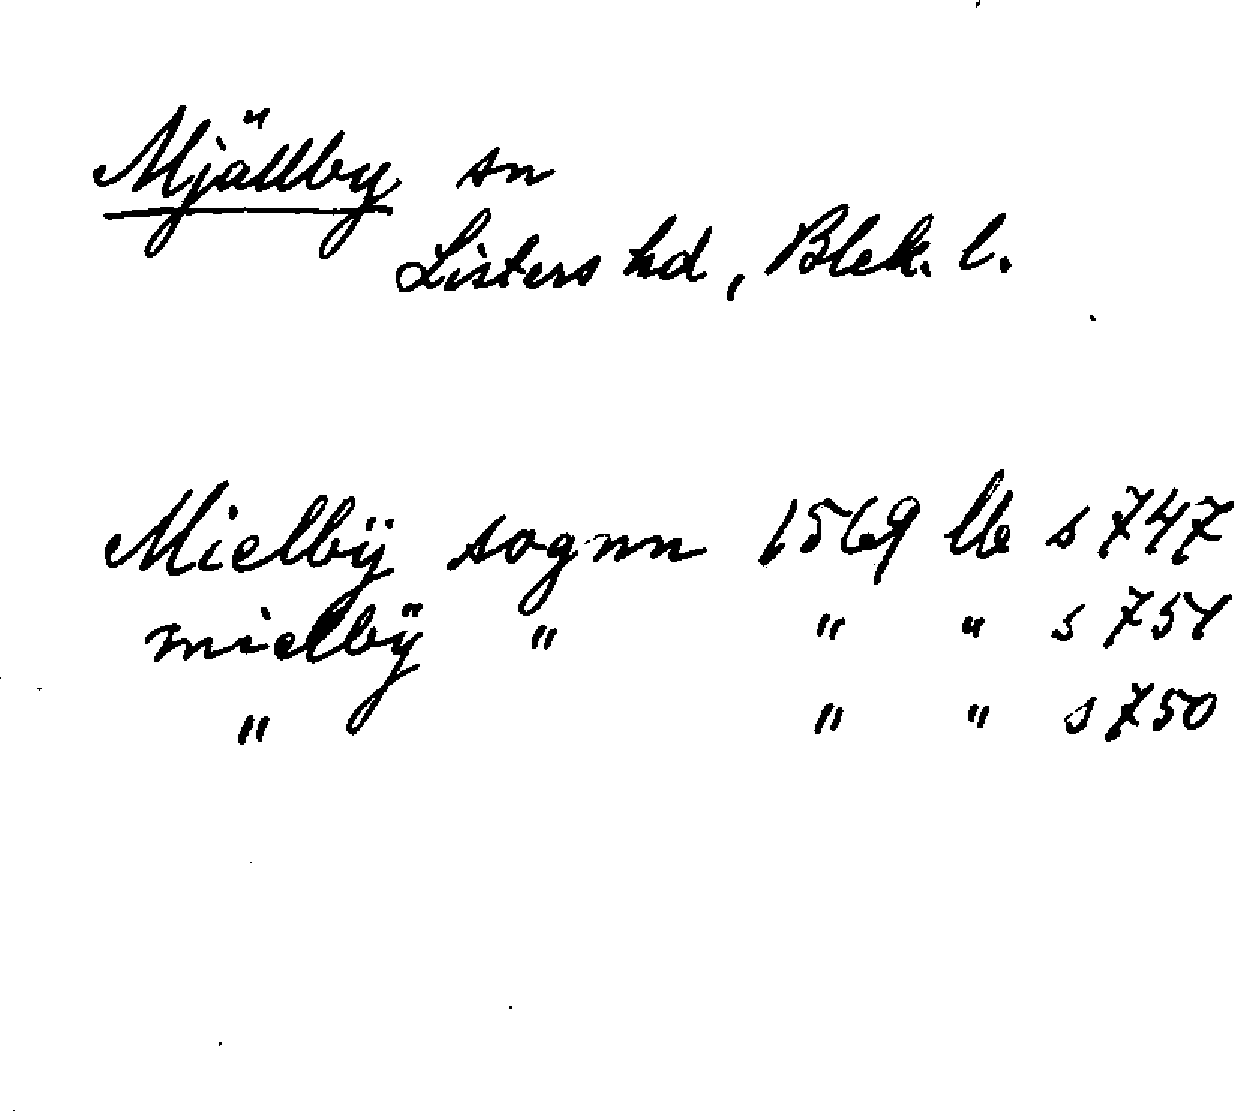 Mjällby sn
Listers hd, Blek. l.
Mielbÿ sognn 1569 lb s 747
mielbÿ " " " s 751
" " " s 750